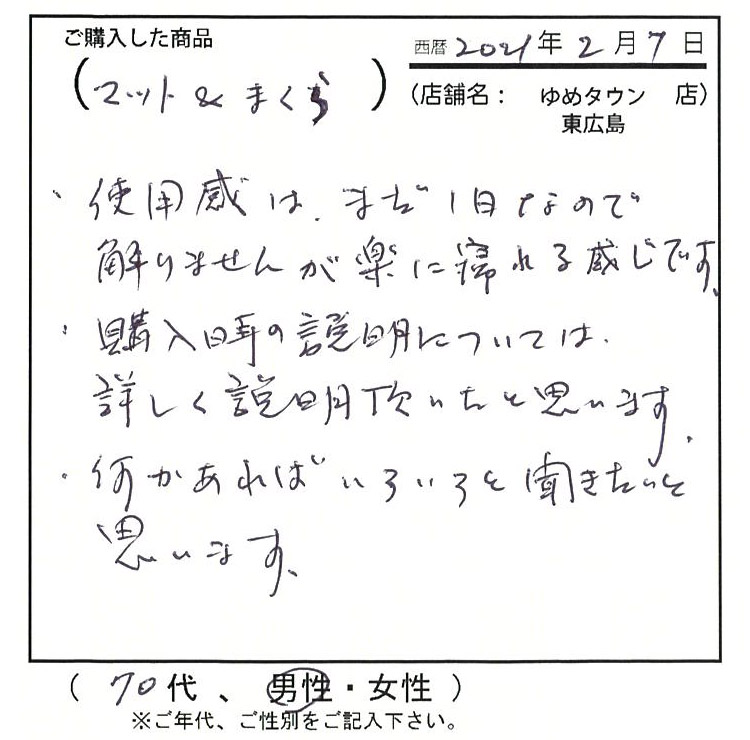 ご購入した商品
西暦 2021年 2月 7日
(マット&まくら)
(店舗名： ゆめタウン 店)
東広島
・使用感は、まだ1日なので
解りませんが楽に寝れる感じです。
・購入時の説明については、
詳しく説明頂いたと思います。
・何かあればいろいろと聞きたいと
思います。
( 70代 、 男性・女性 )
※ご年代、ご性別をご記入下さい。